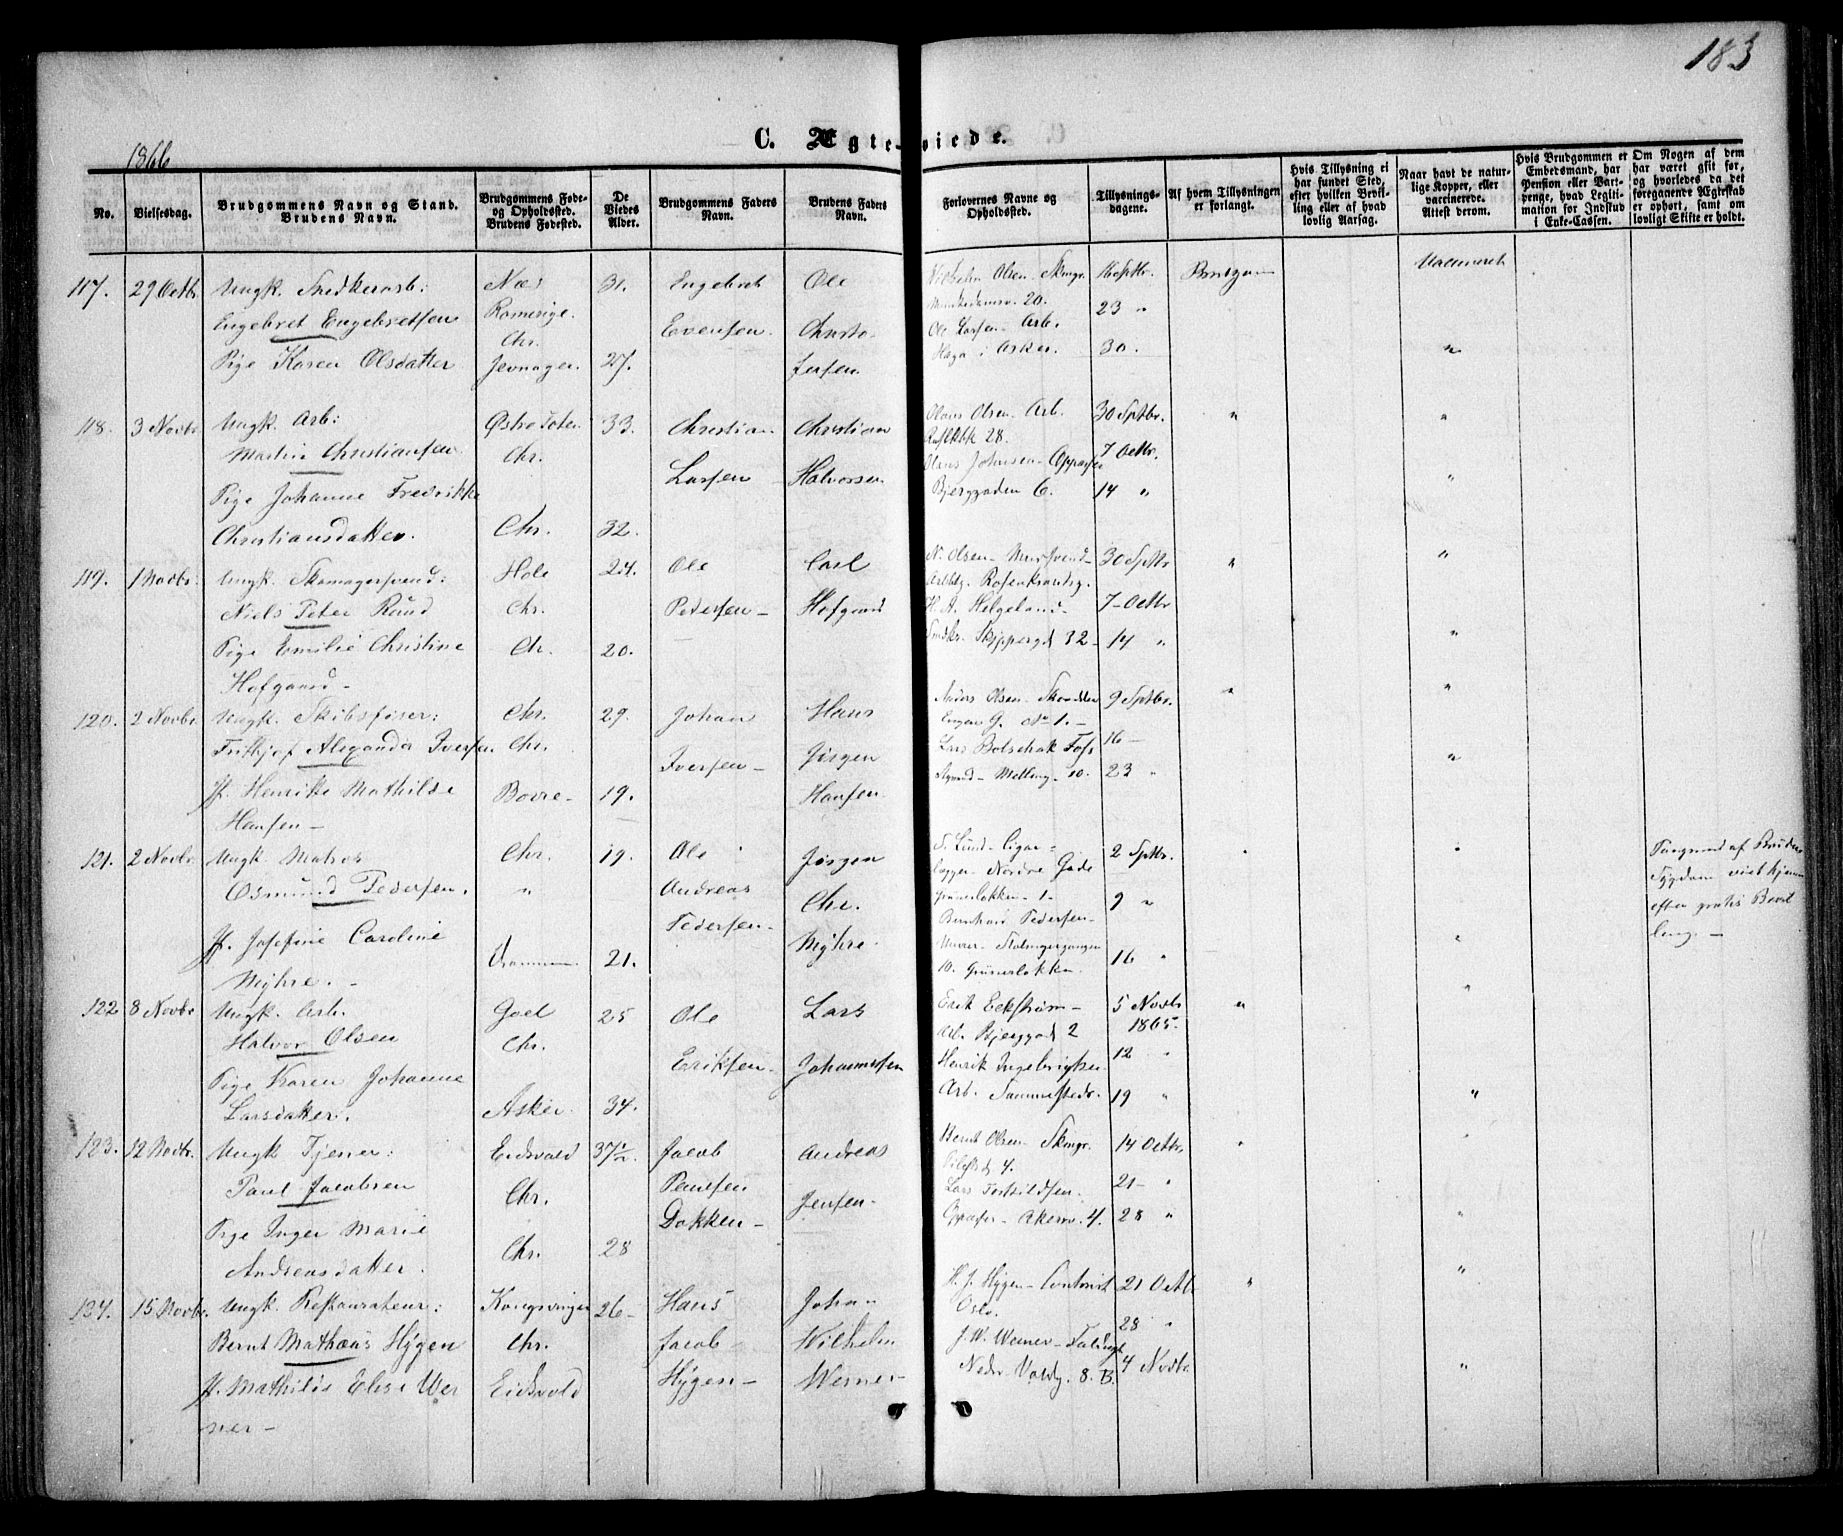 183
1866
C. Ægte-viede.
No.
Vielsesdag.
Brudgommens Navn og Stand.
Brudens Navn.
Brudgommens Føde-
og Opholdssted.
Brudens Fødested.
De
Viedes
Alder.
Brudgommens Faders
Navn.
Brudens Faders
Navn.
Forlovernes Navne og
Opholdssted.
Tillysnings-
dagene.
Af hvem Tillysningen
er forlangt.
Hvis Tillysning ei
har fundet Sted,
efter hvilken Bevil-
ling eller af hvad
lovlig Aarsag.
Naar havt de natur-
lige Kopper, eller
vaccinerede.
Attest derom.
Hvis Brudgommen er
Embedsmand, har
Pension eller Vart-
penge, hvad Legiti-
mation for Indskud
i Enke-Cassen.
Om Nogen af dem
har været gift før,
og hvorledes da det
foregaaende Ægteskab
er ophørt, samt om
lovligt Skifte er holdt.
117. 29 Octbr. Ungk. Snedkerarb: Næs 31. Engebret Ole
Engebret Engebretsen Romerige. Evensen. Christo-
Chr. fersen.
Pige Karen Olsdatter Jevnager 27.
Olsen 16 Sptbr. Vaccineret
20. 23 "
Ole Larsen Arb.
Haga i Asker. 30. "
118. 3 Novbr. Ungk. Arb: Østre Toten 33. Christian Christian
Martin Christiansen Chr. Larsen Halvorsen
Pige Johanne Fredrikke
Christiansdatter. Chr. 32.
Olaus Olsen Arb. 30 Sptbr. " "
28. 7 Octbr.
Olaus Johnsen
Bjerggaden 6. 14 " "
119. 1 Novbr: Ungk. Skomagersvend: Hole 24. Ole Carl
Niels Peter Ruud Chr. Pedersen Hofgaard
Pige Emilie Christine Chr. 20.
Hofgaard
N. Olsen Mursvend 30 Sptbr " "
Rosenkrantzg.
H. A. Helgeland 7 Octbr
Skipperg 32 14 " "
120. 2 Novbr. Ungk. Skibsfører: Chr. 29. Johan Hans
Frithjof Alexander Iversen Chr. Iversen Jørgen
Jf. Henrike Mathilde Borre 19. Hansen
Hansen
Olsen 9 Sptbr. " "
No 1. 16
Lars
10. 23 " "
121. 2 Novbr. Ungk. Matros Chr. 19. Ole Jørgen
Osmund Pedersen. " Andreas Chr.
Jf. Josefine Caroline Pedersen Myhre.
Myhre. 21.
Lund Cigar- 2 Sptbr. " "
Nordre Gade
Grünerløkken 1 9 "
Bernhard Pedersen
Murer 16 " "
10. Grünerløkken
Paagrund af Brudens
Sygdom viet hjemme
efter gratis Bevil-
ling.
122 8 Novbr Ungk. Arb. Goel 25 Ole Lars
Halvor Olsen Chr. Eriksen Johannessen
Pige Karen Johanne
Larsdatter. Asker. 34.
Erik Eckstrøm 5 Novbr " "
Arb. Bjerggad 2 1865
Henrik Ingebrigtsen 12 "
Arb. Sammesteds. 19 " "
123. 12 Novbr. Ungk Tjener: Eidsvold 37½. Jacob Andreas
Paul Jacobsen Chr. Paulsen Jensen
Pige Inger Marie Dokken
Andreasdatter. Chr. 28
Bernt Olsen 14 Octbr. " "
4. 21 "
Lars Torkildsen.
Akersv. 4. 28 " "
124. 15 Novbr. Ungk. Restaurateur: Kongsvinger 26 Hans Johan
Bernt Mathæus Hÿgen Chr. Jacob Wilhelm
Jf. Mathilde Elise Wer Eidsvold Hÿgen Werner
ner
H. J. Hÿgen 21 Octbr " "
Oslo. 28 "
J. W. Werner
Nedre Voldg. 8. B. 4 Novbr. "